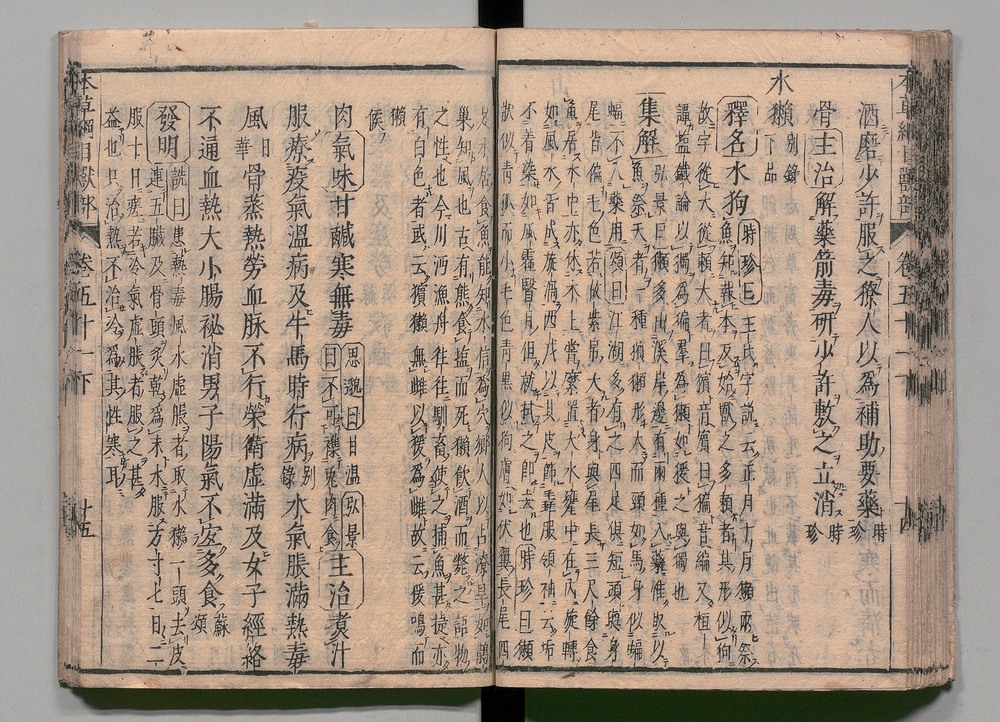 本草綱目獸部 卷五十一下 十四
酒磨少許服之獠人以為補助要藥時珍
骨主治解藥箭毒研少許敷之立消時珍
水獺別錄下品
釋名水狗時珍曰王氏字說云正月十月獺兩祭
魚知報本反始獸之多賴者其形似狗
故字從犬從賴大者曰獱音賓曰猵音編又桓
譚鹽鐵論以獨為猵群為獺如猨之與獨也
集解弘景曰獺多出溪岸邊有兩種入藥惟取以
魚祭天者一種獱獺形大而頭如馬身似蝙
蝠不入藥用頌曰江湖多有之四足俱短頭與身
尾皆褊毛色若故紫帛大者身與尾長三尺餘食
魚居水中亦休木上嘗縻置大水甕中在內旋轉
如風水皆成旋渦西戎以其皮飾毳服領袖云垢
不着染如風霾翳目但就拭之即去也時珍曰獺
狀似青狐而小毛色青黑似狗膚如伏翼長尾四
足水居食魚能知水信為穴鄉人以占潦旱如鵲
巢知風也古有熊食塩而死獺飲酒而斃之語物
之性也今川沔漁舟往往馴畜使之捕魚甚捷亦
有白色者或云獱獺無雌以猨為雌故云猨鳴而
獺
候
肉氣味甘鹹寒無毒思邈曰甘溫弘景曰不可雜兎肉食主治煮汁
服療疫氣溫病及牛馬時行病別錄水氣脹滿熱毒
風日華骨蒸熱勞血脉不行榮衛虛滿及女子經絡
不通血熱大小腸祕消男子陽氣不宜多食蘇頌
發明詵曰患熱毒風水虛脹者取水獺一頭去皮
連五臟及骨頭尾炙乾為末水服方寸匕日二
服十日瘥若冷氣虛脹者服之甚
益也只治熱不治冷為其性寒耳
本草綱目獸部 卷五十一下 十五